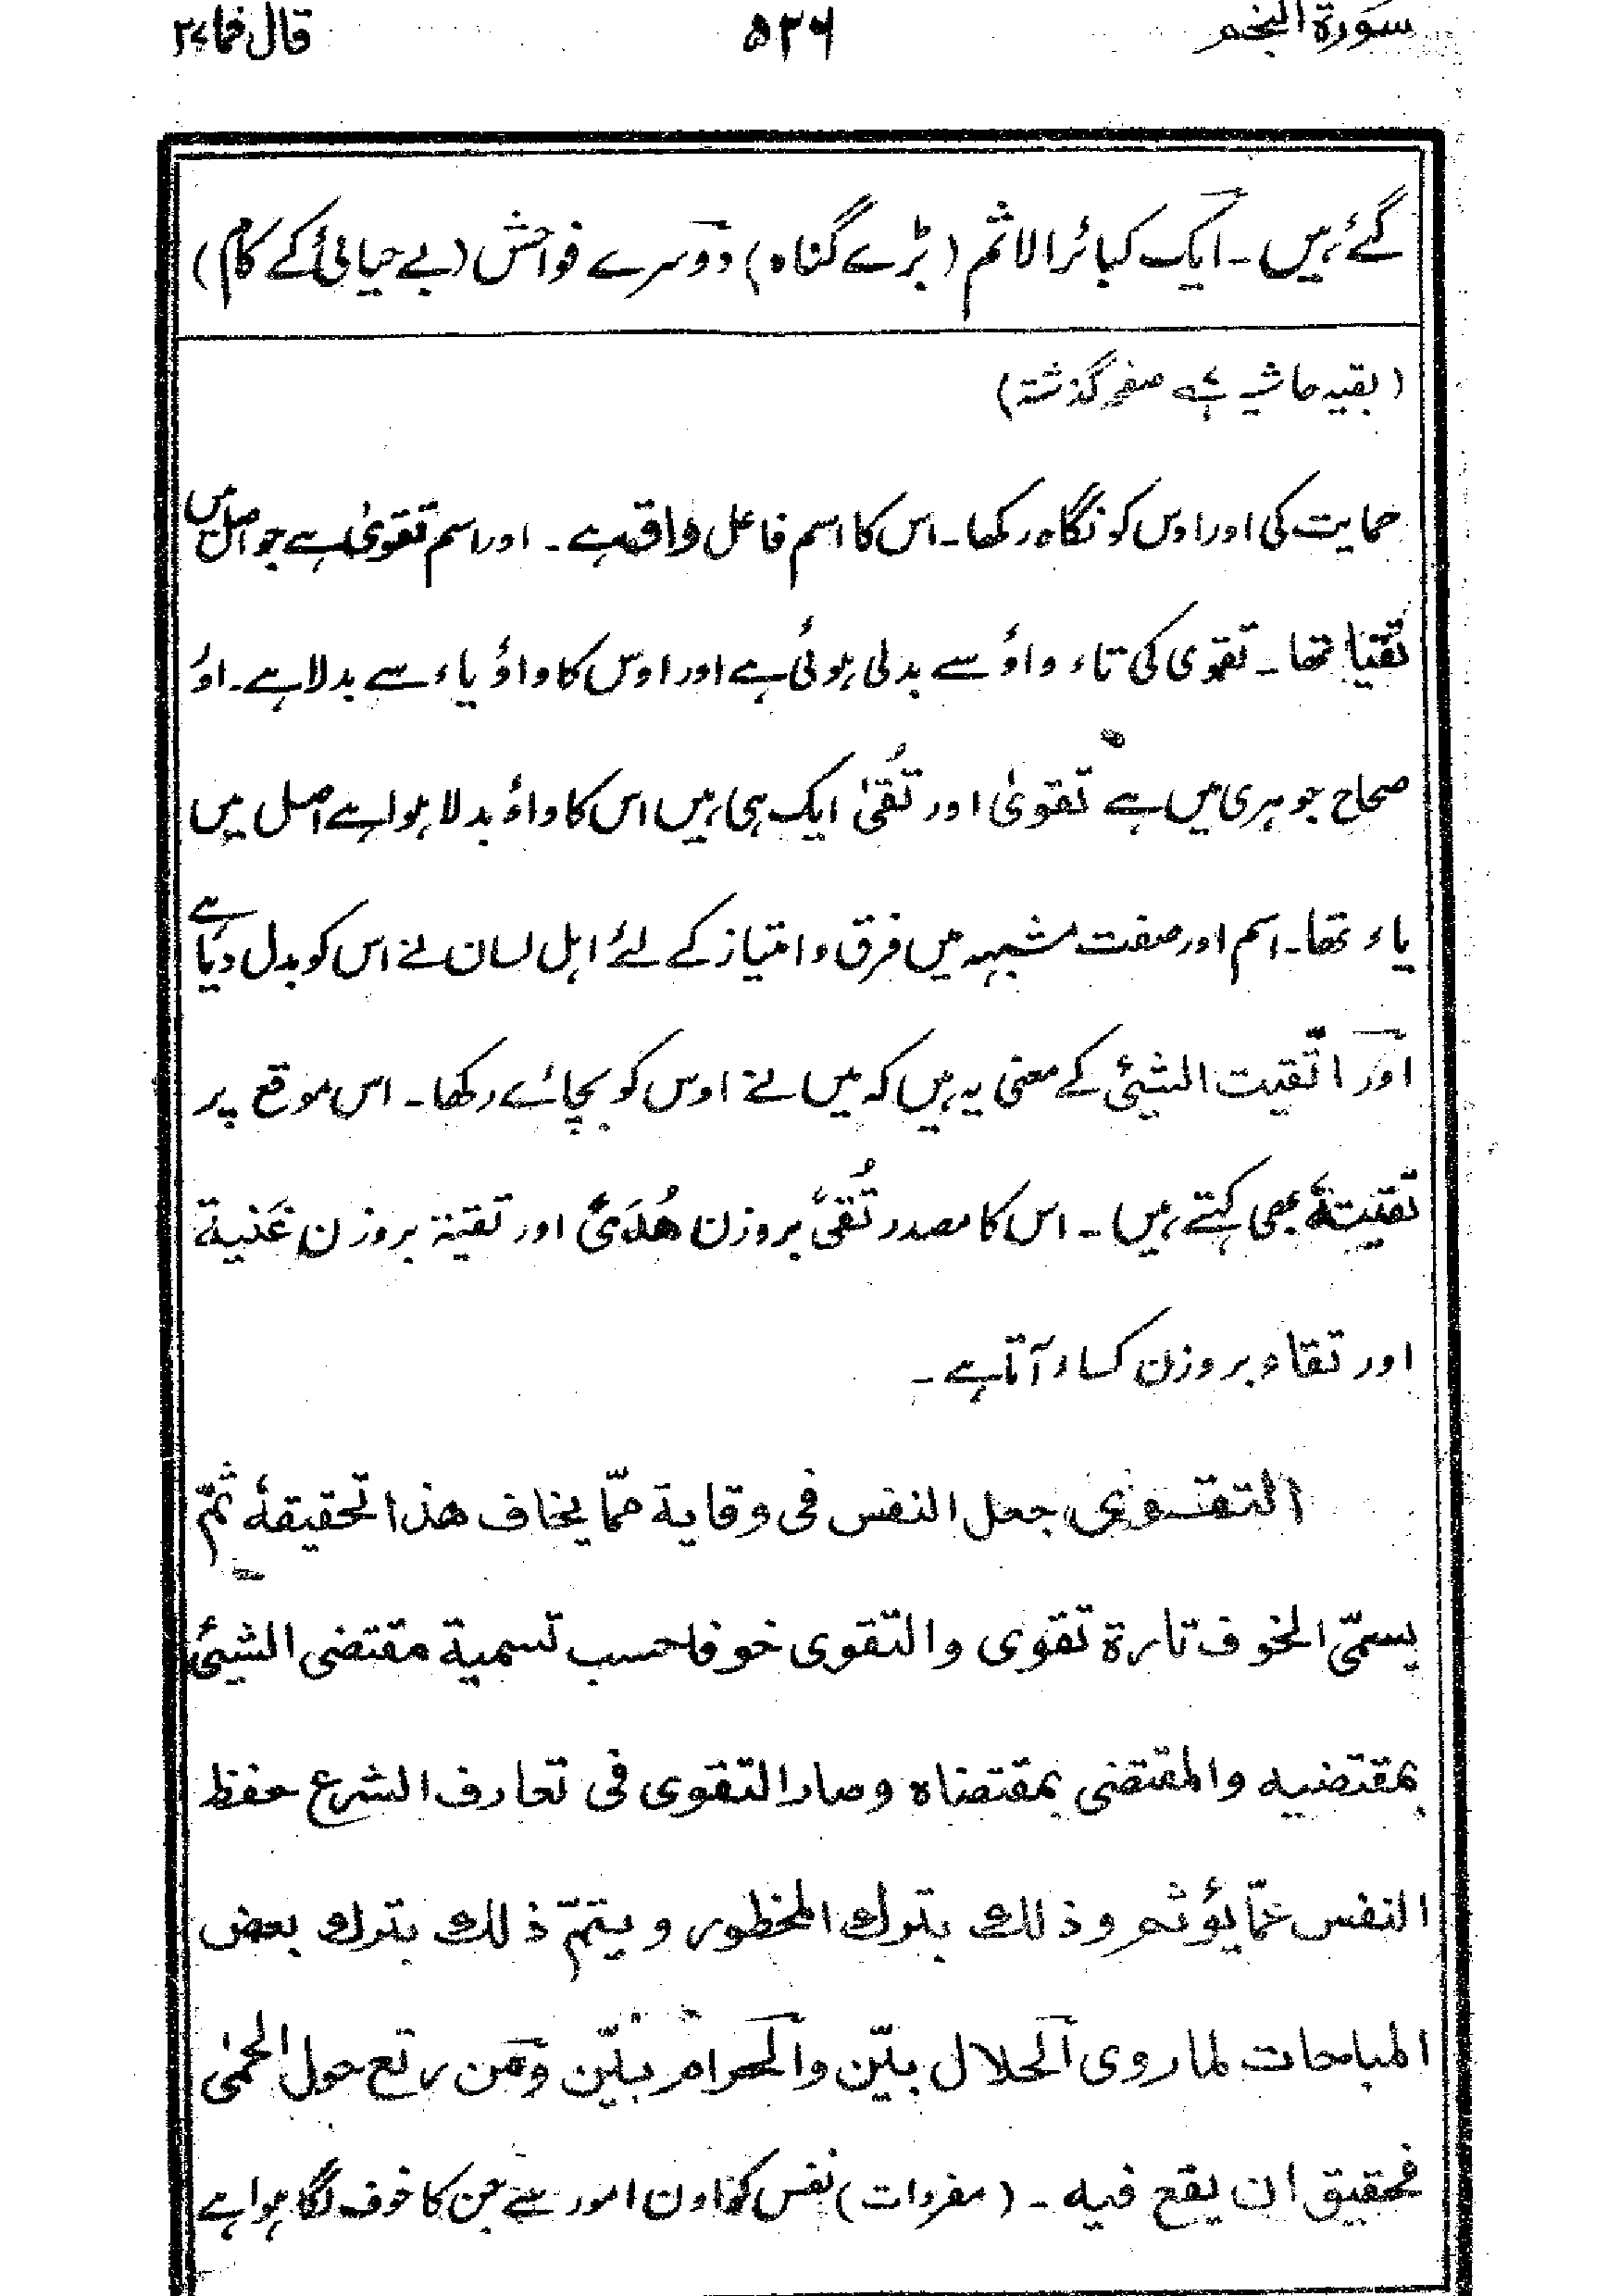 سورة النجم ۵۲۶ قال فما ۲۷
گئے ہیں ۔ ایک کبائر الاثم (بڑے گناہ) دوسرے فواحش (بے حیائی کے کام)
(بقیہ حاشیہ صفحہ گذشتہ)
حمایت کی اور اوس کو نگاہ رکھا ۔ اس کا اسم فاعل واق ہے ۔ اور اسم تقویٰ ہے جو اصل میں
تقیا تھا ۔ تقوی کی تاء واؤ سے بدلی ہوئی ہے اور اوس کا واؤ یاء سے بدلا ہے ۔ اور
صحاح جوہری میں ہے تقویٰ اور تُقیٰ ایک ہی ہیں اس کا واؤ بدلا ہوا ہے اصل میں
یاء تھا ۔ اسم اور صفت مشبہہ میں فرق و امتیاز کے لئے اہل لسان نے اس کو بدل دیا ہے
اور اتّقیت الشیئ کے معنی یہ ہیں کہ میں نے اوس کو بچائے رکھا ۔ اس موقع پر
تقیتہٗ بھی کہتے ہیں ۔ اس کا مصدر تُقیً بروزن ھُدَیً اور تقیۃ بروزن غَنیۃ
اور تقاء بروزن کساء آتا ہے ۔
التقوی جعل النفس فی وقایة ممّا یخاف هذا تحقیقهٗ ثمّ
یسمّی الخوف تارة تقوی والتقوی خوفا حسب تسمیة مقتضی الشیئ
بمقتضیه والمقتضی بمقتضاه وصار التقوی فی تعارف الشرع حفظ
النفس عمّا یؤثم وذلك بترك المحظور ویتمّ ذلك بترك بعض
المباحات لما روی الحلال بیّن والحرام بیّن ومن رتع حول الحمٰی
فحقیق ان یقع فیه ۔ (مفردات) نفس کو اون امور سے جن کا خوف لگا ہوا ہے